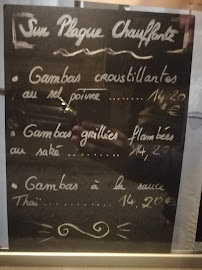 Sur Plaque Chauffante
• Gambas croustillantes
au sel poivre ........ 14,20
€
• Gambas grillées flambées
au saté ........ 14,20€
• Gambas à la sauce
Thaï ........ 14,20€